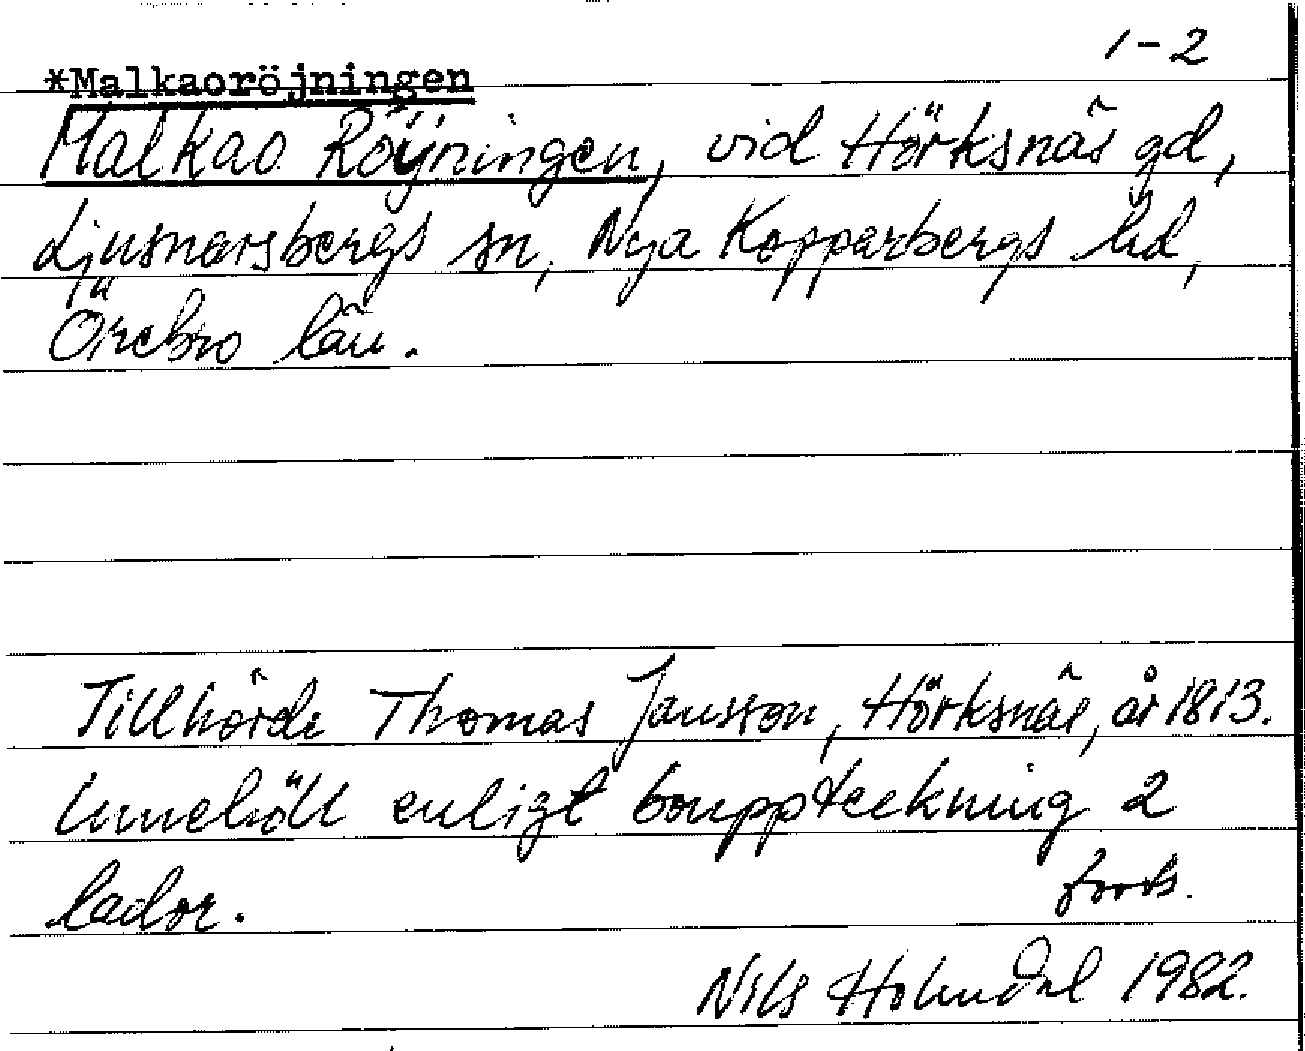 1-2
*Malkaoröjningen
Malkao Röijningen, vid Hörksnäs gd,
Ljusnarsbergs sn, Nya Kopparbergs hd,
Örebro län.
Tillhörde Thomas Jansson, Hörksnäs, år 1813.
Innehöll enligt bouppteckning 2
lador.
forts.
Nils Holmdal 1982.